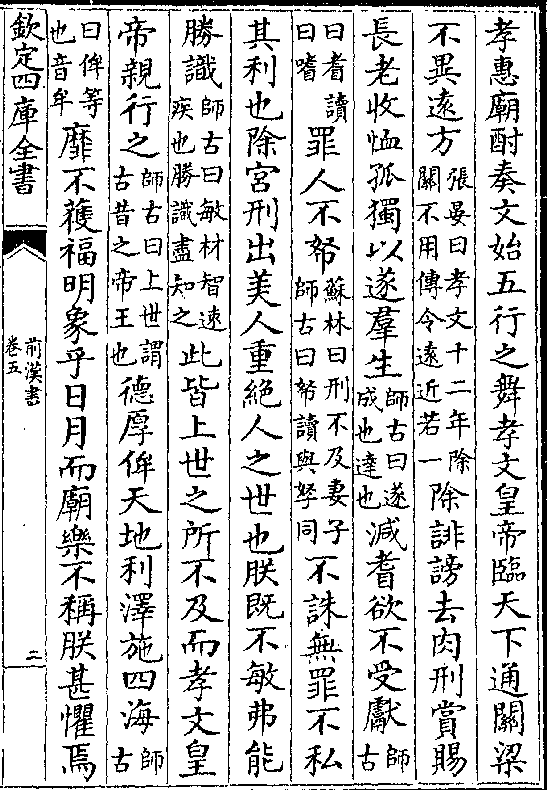 孝惠廟酎奏文始五行之舞孝文皇帝臨天下通關梁
不異遠方張晏曰孝文十二年除關不用傳令遠近若一除誹謗去肉刑賞賜
長老收恤孤獨以遂羣生師古曰遂成也達也減耆欲不受獻師古
曰耆讀曰嗜罪人不帑蘇林曰刑不及妻子師古曰帑讀與孥同不誅無罪不私
其利也除宮刑出美人重絕人之世也朕既不敏弗能
勝識師古曰敏材智速疾也勝識盡知之此皆上世之所不及而孝文皇
帝親行之師古曰上世謂古昔之帝王也德厚侔天地利澤施四海師古
曰侔等也音牟靡不獲福明象乎日月而廟樂不稱朕甚懼焉
欽定四庫全書
前漢書
卷五
二